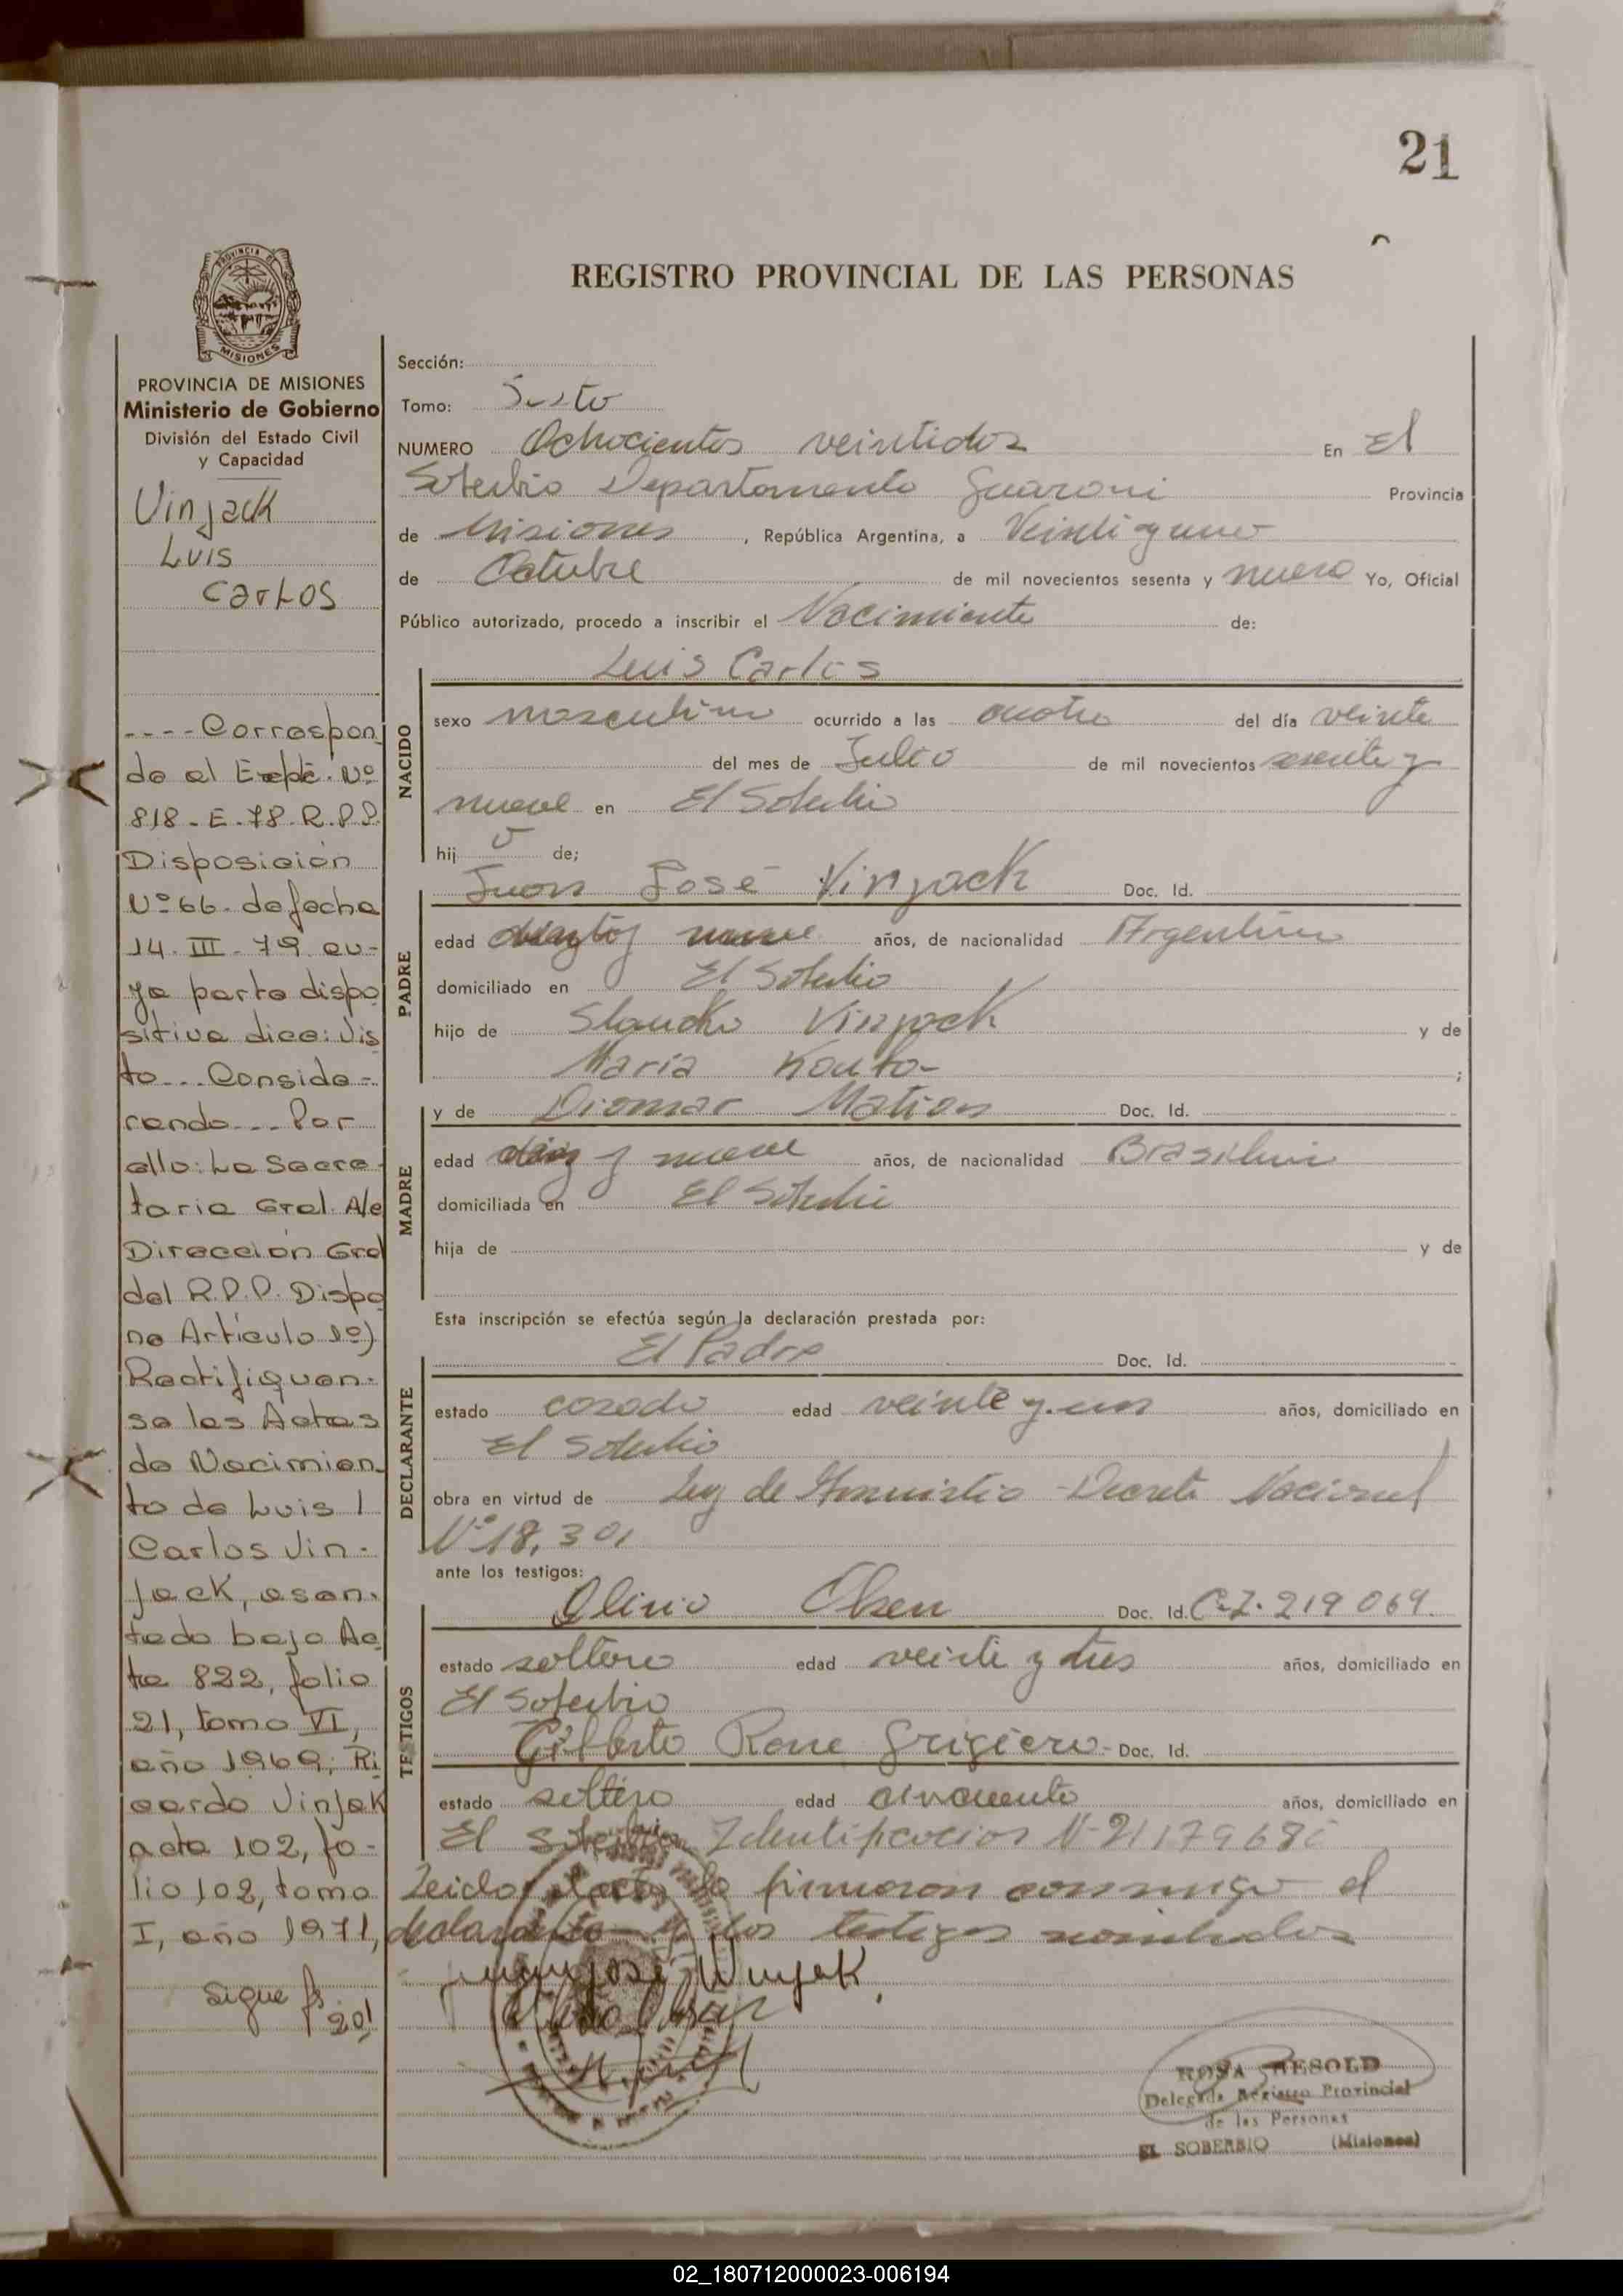 21
REGISTRO PROVINCIAL DE LAS PERSONAS
PROVINCIA DE
MISIONES
PROVINCIA DE MISIONES
Ministerio de Gobierno
División del Estado Civil
y Capacidad
Vinjack
Luis
Carlos
---- Correspon
de al Expte. Nº
818-E-78-R.P.P.
Disposición
Nº 66- de fecha
14-III-79 cu-
ya parte dispo
sitiva dice: Vis
to... Conside-
rando... Por
ello: La Secre
taria Gral. A/c
Dirección Gral
del R.P.P. Dispo
ne Artículo 1º)
Rectifiquen-
se las Actas
de Nacimien
to de Luis
Carlos Vin-
jack, asen-
tado bajo Ac
ta 822, folio
21, tomo VI,
año 1969; Ri
cardo Vinjak
acta 102, fo-
lio 102, tomo
I, año 1971,
Sigue fs
20!
Sección:
Tomo: Sexto
NUMERO Ochocientos veintidos En El
Soberbio Departamento Guarani Provincia
de Misiones, República Argentina, a Veinti y uno
de Octubre de mil novecientos sesenta y nueve Yo, Oficial
Público autorizado, procedo a inscribir el Nacimiento de:
Luis Carlos
NACIDO
sexo masculino ocurrido a las cuatro del día veinte
del mes de Julio de mil novecientos sesenta y
nueve en El Soberbio
hij o de;
PADRE
Juan José Vinjack Doc. Id.
edad nueve años, de nacionalidad Argentino
domiciliado en El Soberbio
hijo de Vinjack y de
Maria ;
MADRE
y de Diomar Doc. Id.
edad diez y nueve años, de nacionalidad
domiciliada en El Soberbio
hija de y de
Esta inscripción se efectúa según la declaración prestada por:
DECLARANTE
El Padre Doc. Id.
estado casado edad veinte y un años, domiciliado en
El Soberbio
obra en virtud de Ley de Amnistia - Decreto Nacional
Nº 18,301
ante los testigos:
TESTIGOS
Olinio Olsen Doc. Id. C.I. 219 069.
estado soltero edad veinte y tres años, domiciliado en
El Soberbio
Gilberto Rene Doc. Id.
estado soltero edad cincuenta años, domiciliado en
El Soberbio
Leido el acta la firmaron conmigo el
declarante y los testigos nombrados
Juan José Vinjak
ROSA
Delegada Registro Provincial
de las Personas
EL SOBERBIO (Misiones)
02_180712000023-006194